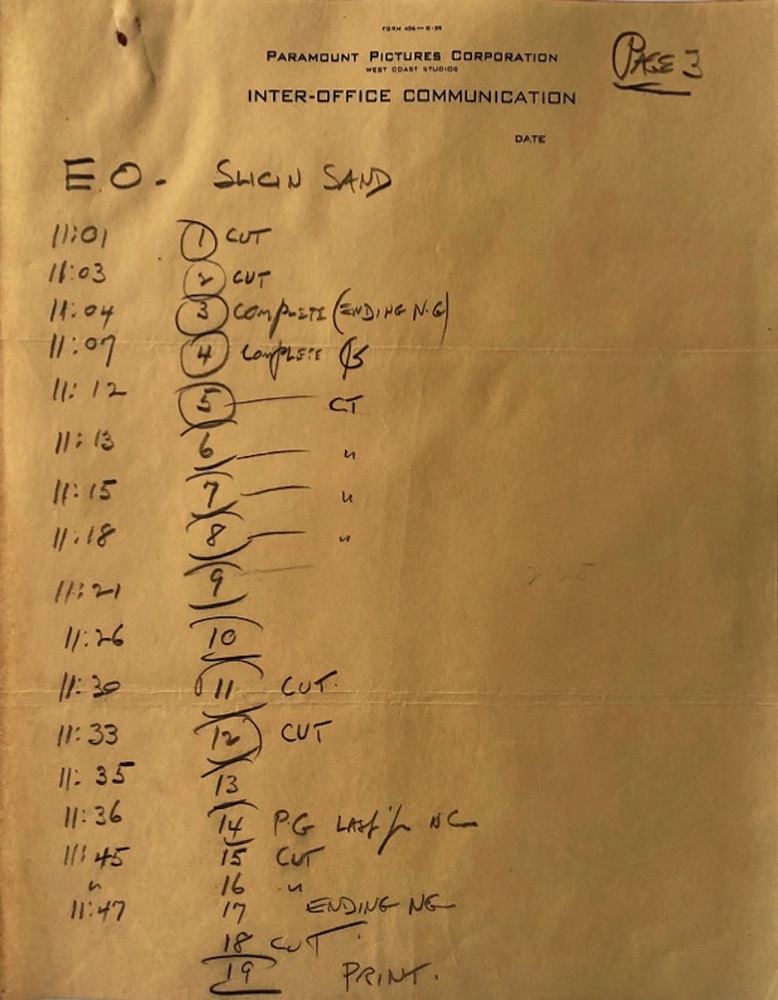 FORM 404—6-39
PARAMOUNT PICTURES CORPORATION
WEST COAST STUDIOS
INTER-OFFICE COMMUNICATION
PAGE 3
DATE
E.O. - SLICIN SAND
11:01 1 CUT
11:03 2 CUT
11:04 3 COMPLETE (ENDING N.G)
11:07 4 COMPLETE
11:12 5 — CT
11:13 6 — "
11:15 7 — "
11:18 8 — "
11:21 9 —
11:26 10
11:30 11 CUT.
11:33 12 CUT
11:35 13
11:36 14 P.G LAST
11:45 15 CUT
" 16 "
11:47 17 ENDING NG
18 CUT
19 PRINT.